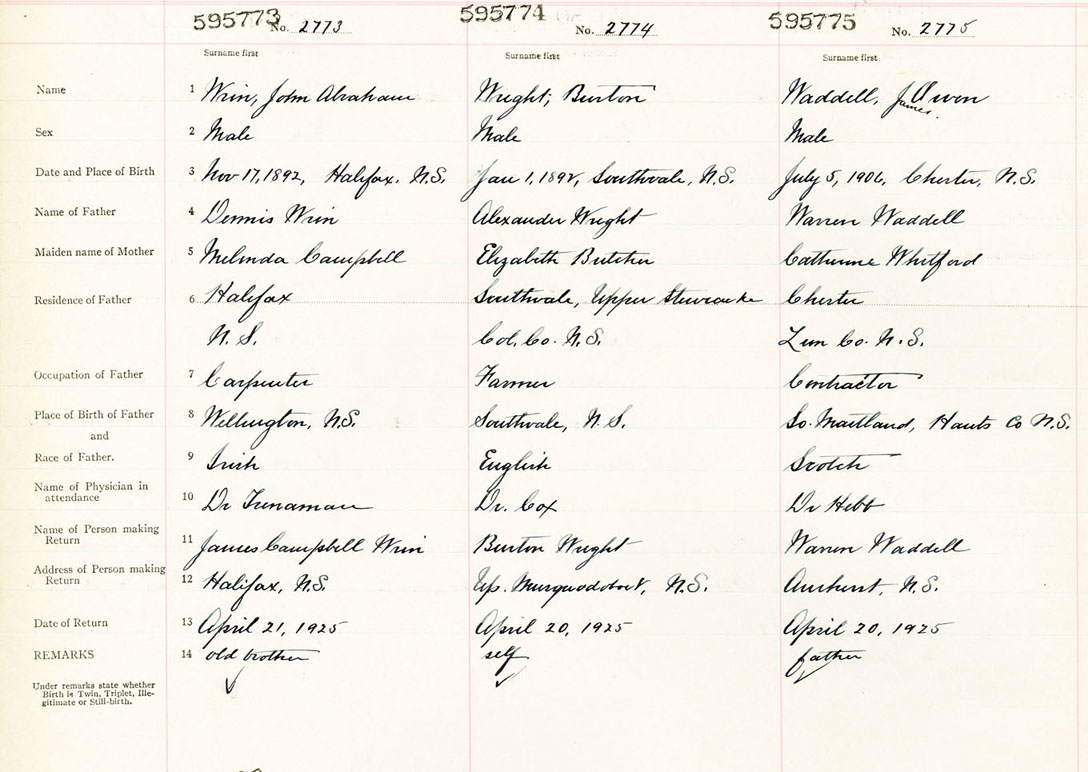 595773 No. 2773 595774 No. 2774 595775 No. 2775
Surname first Surname first Surname first
Name 1 Wrin, John Abraham Wright, Burton Waddell, James Owen
Sex 2 Male Male Male
Date and Place of Birth 3 Nov 17, 1892, Halifax, N.S. Jan 1, Southvale, N.S. July 5, 1906, Chester, N.S.
Name of Father 4 Dennis Wrin Alexander Wright Warren Waddell
Maiden name of Mother 5 Melinda Campbell Elizabeth Butcher Catherine Whitford
Residence of Father 6 Halifax Southvale, Upper Stewiacke Chester
N.S. Col. Co. N.S. Lun Co. N.S.
Occupation of Father 7 Carpenter Farmer Contractor
Place of Birth of Father 8 Wellington, N.S. Southvale, N.S. So. Maitland, Hants Co N.S.
and
Race of Father. 9 Irish English Scotch
Name of Physician in
attendance 10 Dr Trenaman Dr. Cox Dr Hebb
Name of Person making
Return 11 James Campbell Wrin Burton Wright Warren Waddell
Address of Person making
Return 12 Halifax, N.S. Up. Musquodoboit, N.S. Amherst, N.S.
Date of Return 13 April 21, 1925 April 20, 1925 April 20, 1925
REMARKS 14 old brother self father
Under remarks state whether
Birth is Twin, Triplet, Ille-
gitimate or Still-birth.